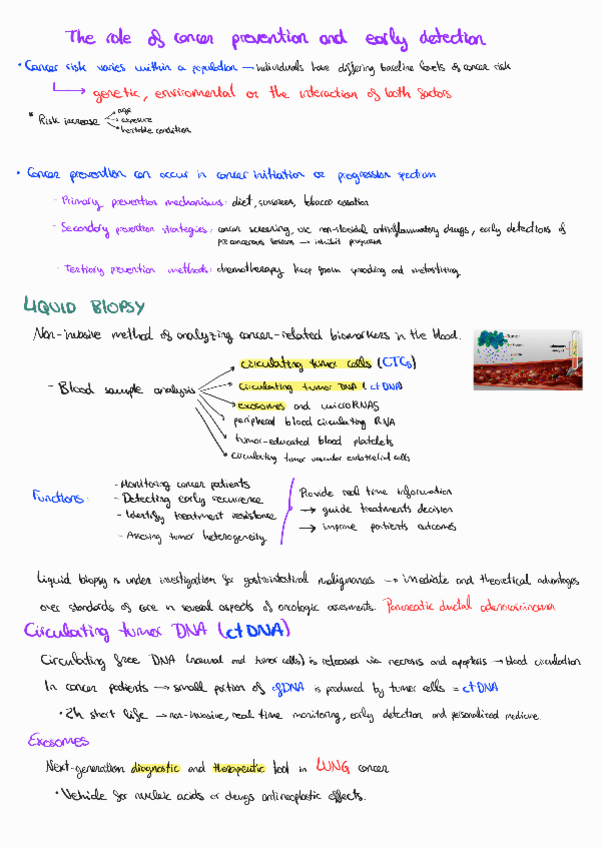 The role of cancer prevention and early detection
• Cancer risk varies within a population — individuals have differing baseline levels of cancer risk
genetic, enviromental or the interaction of both factors
* Risk increase
age
exposure
heritable condition
• Cancer prevention can occur in cancer initiation or progression spectrum
- Primary prevention mechanisms: diet, sunscreen, tobacco cessation
- Secondary prevention strategies: cancer screening, use non-steroidal antiinflammatory drugs, early detections of
precancerous lesions → inhibit progression
- Tertiary prevention methods: chemotherapy keep from spreading and metastizing
LIQUID BIOPSY
Non-invasive method of analyzing cancer-related biomarkers in the blood.
- Blood sample analysis
circulating tumor cells (CTCs)
circulating tumor DNA (ctDNA)
exosomes and microRNAS
peripheral blood circulating RNA
tumor-educated blood platelets
circulating tumor vascular endothelial cells
Functions:
- Monitoring cancer patients
- Detecting early recurrence
- Identify treatment resistance
- Assesing tumor heterogeneity
Provide real time information
→ guide treatments decision
→ improve patients outcomes
Liquid biopsy is under investigation for gastrointestinal malignances → imediate and theoretical advantages
over standards of care in several aspects of oncologic assesments. Pancreatic ductal adenocarcinoma
Circulating tumor DNA (ctDNA)
Circulating free DNA (normal and tumor cells) is released via necrosis and apoptosis → blood circulation
In cancer patients → small portion of cfDNA is produced by tumor cells = ctDNA
• 2h short life → non-invasive, real time monitoring, early detection and personalized medicine.
Exosomes
Next-generation diagnostic and therapeutic tool in LUNG cancer
• Vehicle for nucleic acids or drugs antineoplastic effects.